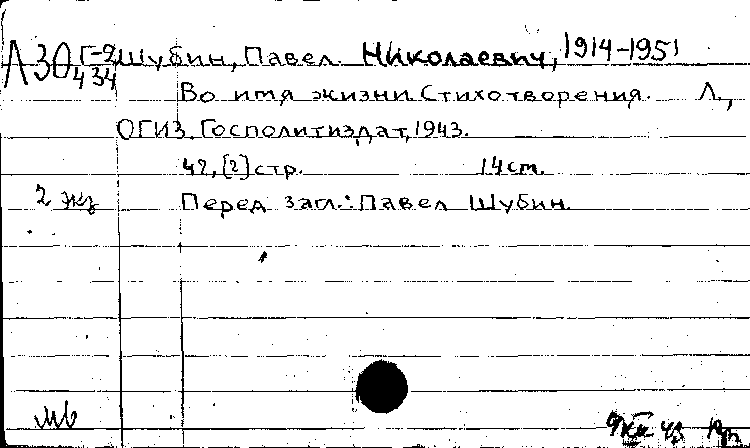 Л30 Г-2 Шубин, Павел Николаевич, 1914-1951
434
Во имя жизни. Стихотворения. Л.,
ОГИЗ. Госполитиздат, 1943.
42, [2] стр. 14 см.
2 экз Перед загл.: Павел Шубин.